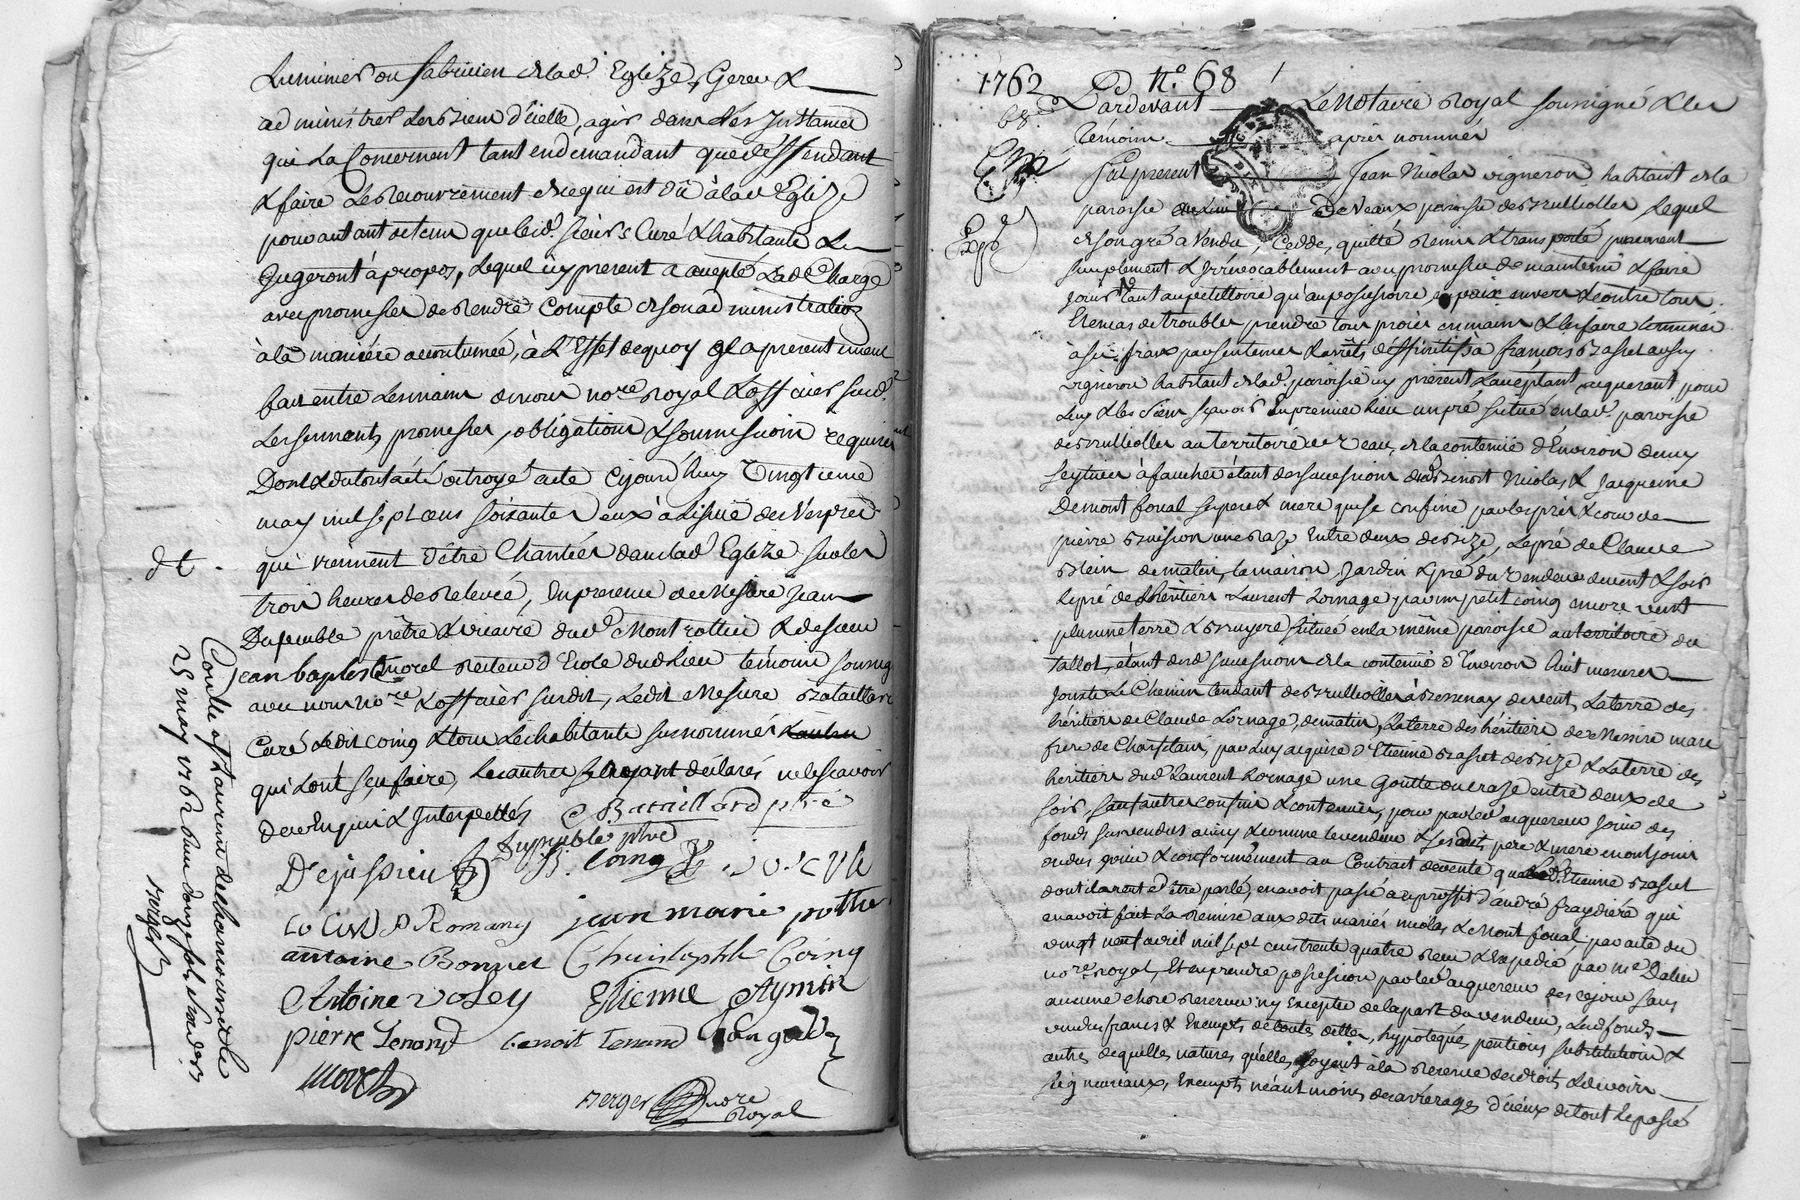 Luminier ou fabricien de lad. Eglize, Gerer &
administrer les biens d'icelle, agir dans les Instances
qui La Concernent tant en demandant que deffendant
& faire Le Recouvrement de ce qui est dû à lad. Eglize
pouvant autant et tems que lesd. sieurs Curé & habitants Le
Jugeront à propos, Lequel icy present a accepté Lad. Charge
avec promesses de Rendre Compte de son administration
à la maniére accoutumée, à L'Effet de quoy il a presentement
fait entre Les mains de nous no.re Royal & officier susd.
Les serments, promesses, obligations & soumissions requises
Dont & du tout a été octroyé acte Cejourd'huy Vingtieme
may mil sept cens soixante deux à L'issuë des Vespres
qui viennent d'être Chantées dans lad. Eglize sur les
trois heures de Relevée, En presence de Messire Jean
Dupeuble prêtre & vicaire dud. Montrottier & de sieur
Jean baptiste morel Recteur d'Ecole dud. Lieu temoins soussignés
avec nous no.re & officier susdit, Ledit Messire Bataillard
Curé Ledit Coing & tous Les habitants susnommés
qui L'ont sçeu faire, Les autres ayant declarés ne le scavoir
de ce Enquis & Interpellés
C Bataillard ptre
Dupeuble ptre
Dejussieu B. Coing
P Romany jean marie pothe
antoine Bonnet Christophle Coing
Antoine Etienne Aymin
pierre Tenand benoit Tenand
morel
Berger no.re Royal
Con.lle à St Laurent de Chamousset le
25 may 1762 Reçu douze sols six den.rs
Berger
1762
N.o 68
68.e
Exp.é
Pardevant Le Notaire Royal soussigné & les
temoins après nommés
fut present Jean Nicolas vigneron habitant de la
paroisse de Veaux paroisse de Brullioles Lequel
de son gré a Vendu, Cedde, quitté Remis & transporté purement
simplement & Irrévocablement avec promesse de maintenir & faire
jouir tant au petittoire qu'au possessoire en paix envers & contre tous
Et en cas de trouble, prendre tous procès en mains & les faire terminer
à ses fraix par sentences & arrêts déffinitifs à françois Brasset aussy
vigneron habitant de lad. paroisse icy present & acceptant, acquerant pour
Luy & les siens sçavoir En premier lieu un pré situé en lad. paroisse
de Brullioles au territoire de Veau, de la contenue d'Environ demy
seytivée à faucher étant des successions de Benoit Nicolas & Jacqueme
Demont foual ses pere & mere qui se confine par les prés & cour de
pierre Buisson une raze Entre deux de bize, Le pré de Claude
Blein de matin, la maison, Jardin & pré du vendeur de vent & soir
Le pré des héritiers Laurent Lornage par un petit coing encore vent
plus une terre & Bruyere située en la même paroisse au territoire du
tallot, étant desd. successions de la contenue d'Environ huit mesures
Jouxte Le Chemin tendant de Brullioles à Bessenay de vent, La terre des
héritiers de Claude Lornage, de matin, La terre des héritiers de Messire marc
frere de Chamflain, par Luy acquise d'Etienne Brasset de bize & La terre des
héritiers dud. Laurent Lornage une Goutte ou raze entre deux de
soir sauf autres confins & contenues, pour par led. acquereur jouir des
fonds sus vendus ainsy & comme le vendeur & Lesdits pere & mere en ont joui
ou dus jouir & conformément au Contrat de vente que led. Etienne Brasset
dont il vient d'être parlé, en avoit passé au proffit d'andré fraydiére qui
en avoit fait La Remise aux dits mariés nicolas & Mont foual par acte du
vingt neuf avril mil sept cens trente quatre Reçu & Expedié par m.e Dalin
no.re royal, Et en prendre possession par led. acquereur des cejour sans
aucune chose Reserver ny Exceptée de la part du vendeur, Lesd. fonds
vendus francs & Exempts de toute dettes, hypoteques, pentions substitution &
autres de quelles natures qu'elles soyent à la Reserve des droits & devoirs
seigneuriaux, Exempts néant moins des arrérages d'iceux de tout Le passé